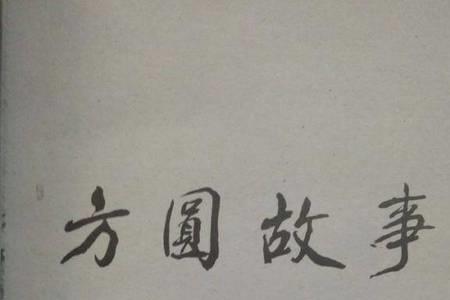 方圓故事